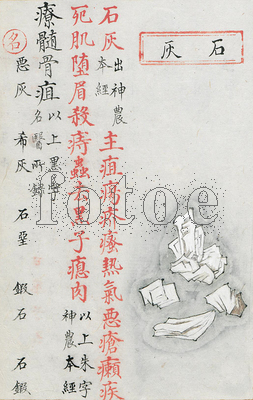 石灰
石灰出神農本經主疽瘍疥瘙熱氣惡瘡癩疾
死肌墮眉殺痔蟲去黑子瘜肉以上朱字神農本經
療髓骨疽以上黑字名醫所錄
名惡灰 希灰 石堊 鍛石 石鍛
fotoe